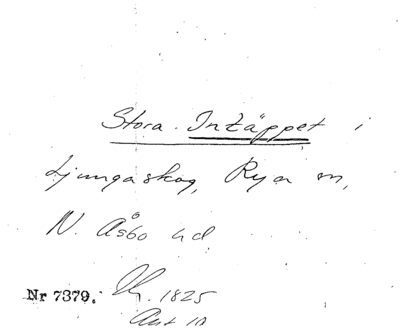 Stora Intäppet i
Ljungaskog, Rya sn,
N. Åsbo hd
Nr 7379. 1825